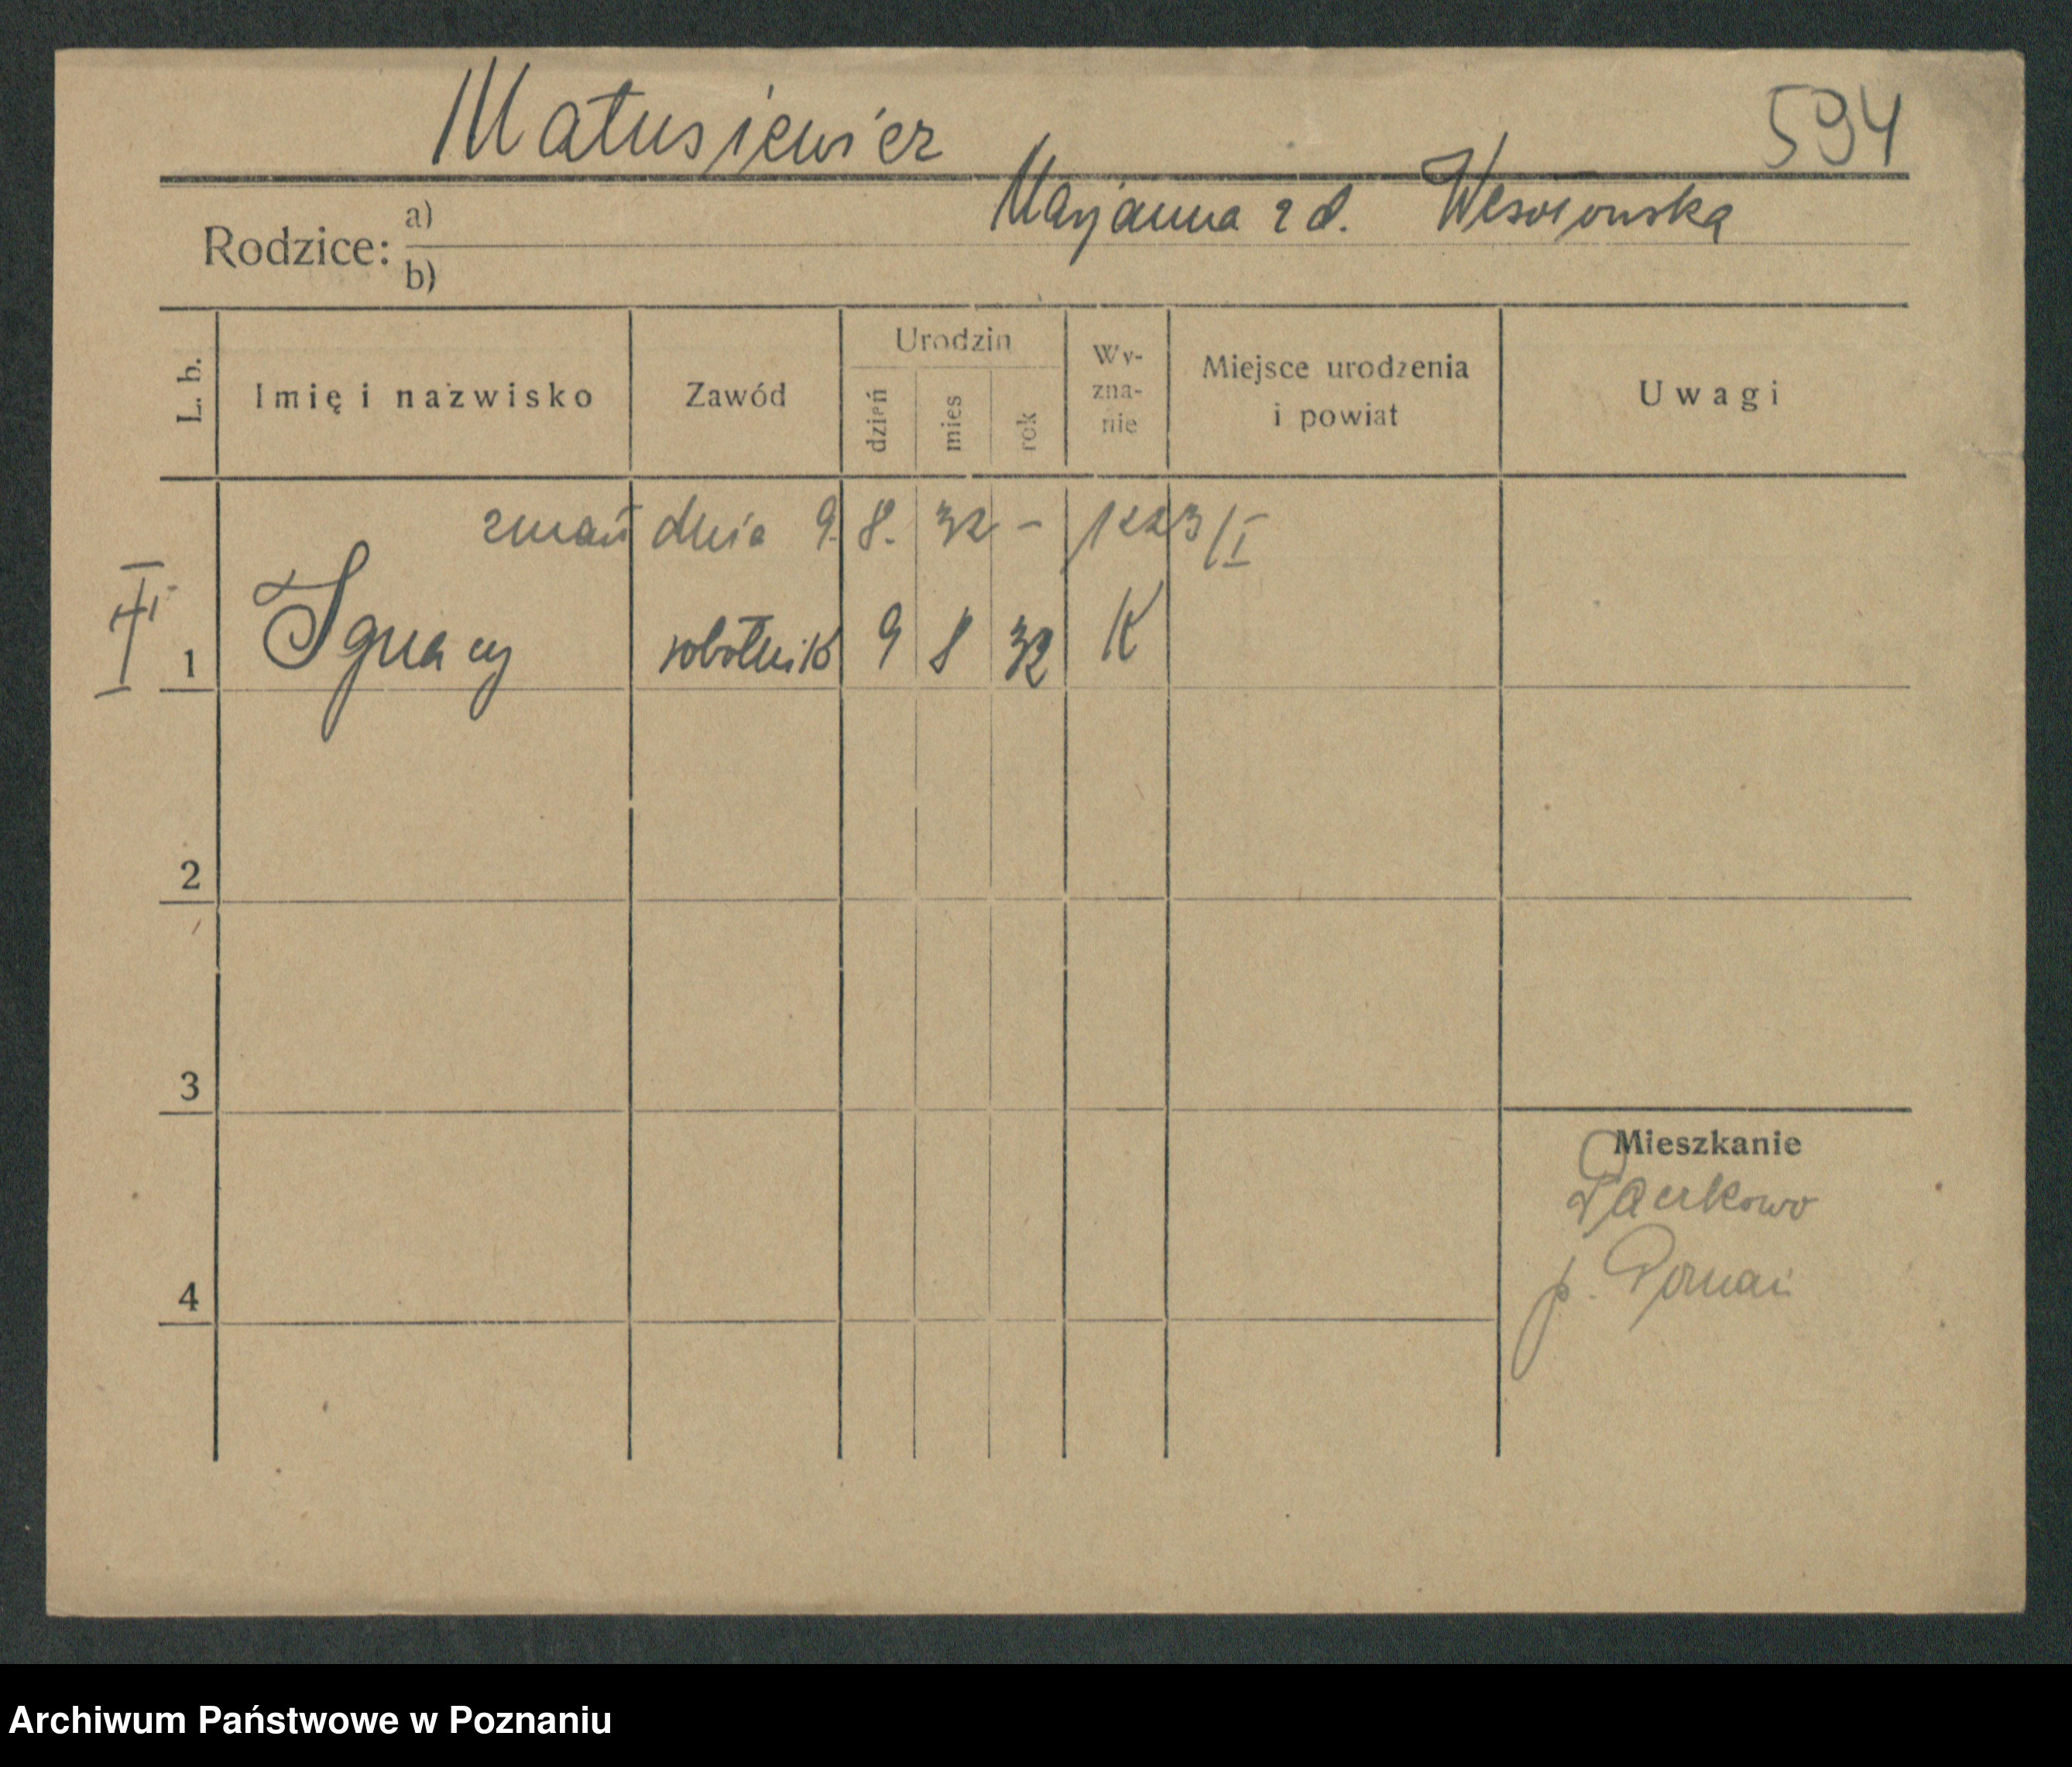 Matusiewicz
594
Marjanna z d. Wesołowska
Rodzice: a)
b)
L. b.
Imię i nazwisko
Zawód
Urodzin
dzień
mies
rok
Wy-
zna-
nie
Miejsce urodzenia
i powiat
Uwagi
zmarł dnia 9. 8. 32 - 1223/I
1 Ignacy robotnik 9 8 32 K
2
3
Mieszkanie
Paczkowo
p. Poznań
4
Archiwum Państwowe w Poznaniu